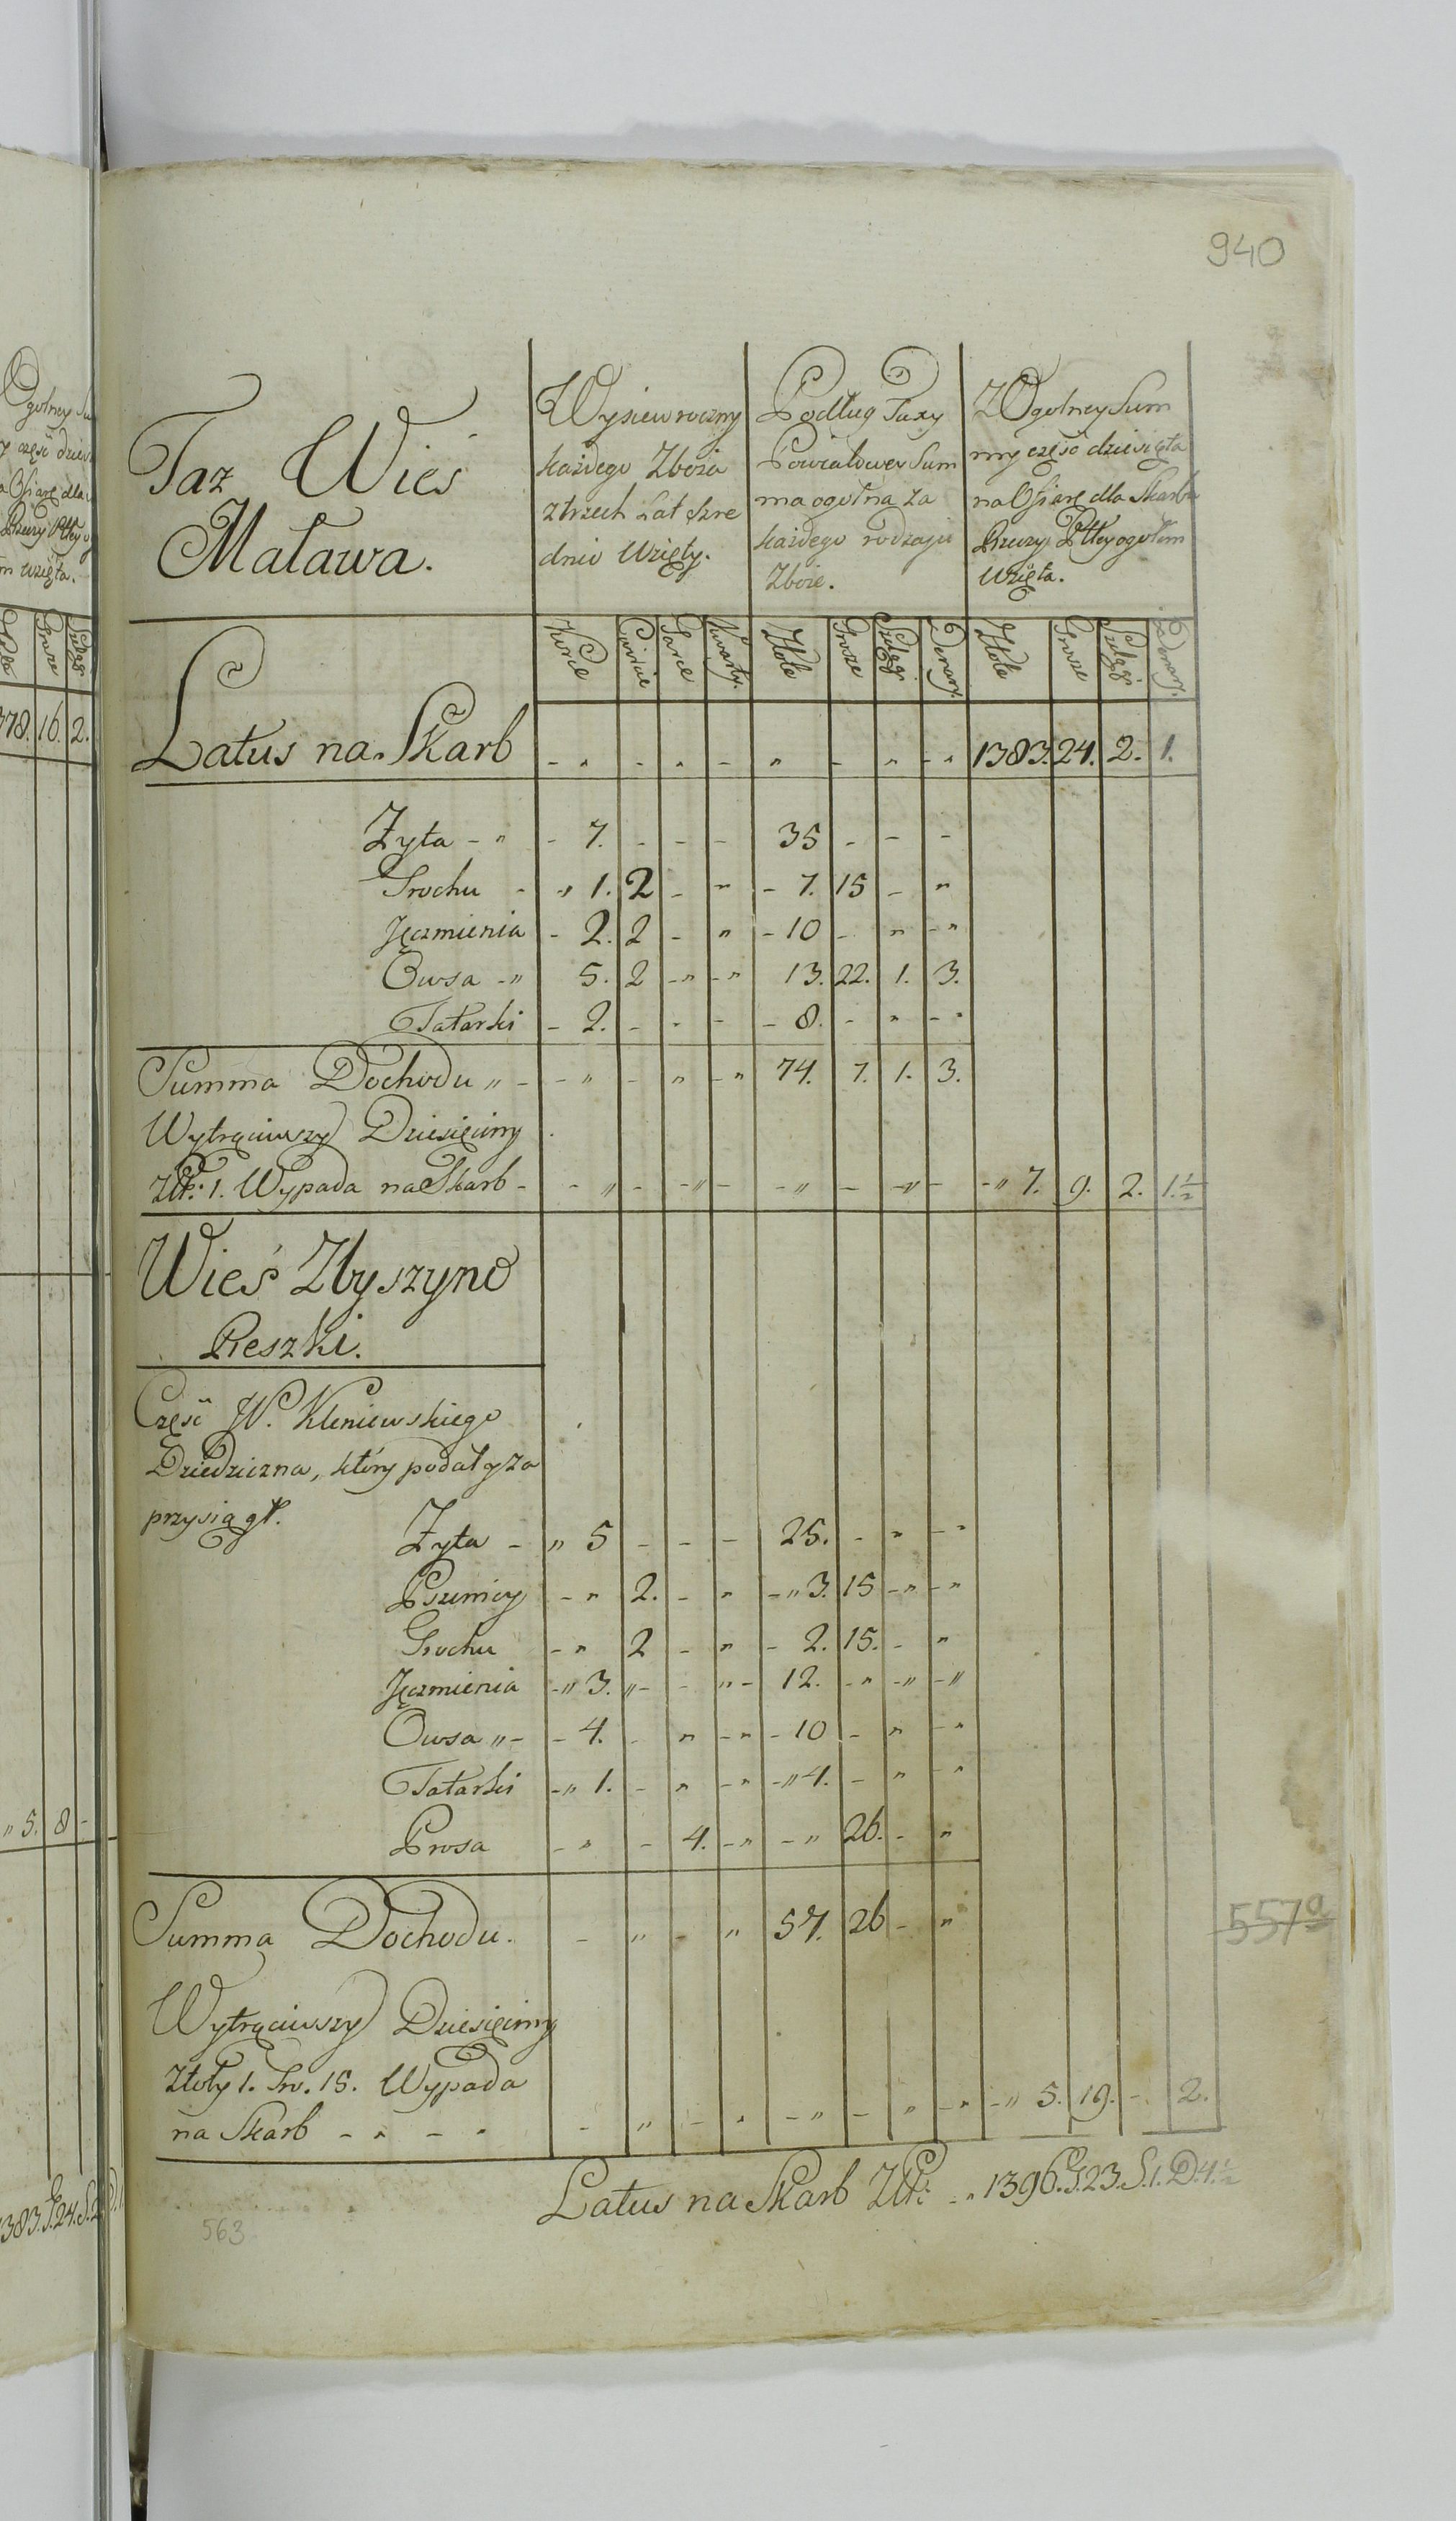 940
Taz Wieś
Maława.
Wysiew roczny
każdego Zboża
z trzech Lat szre
dnio Wzięty.
Podług Taxy
Powiatowey Sum
ma ogolna za
każdego rodzaju
Zboże.
Z Ogolney Sum
my część dziesięta
na Ofiarę dla Skarbu
Rzeczy Pltey ogołem
wzięta.
Korce Cwierci Garce Kwarty. Złote Grosze Szelągi Denary. Złote Grosze Szelągi Denary.
Latus na Skarb - " - " - " - " - " 1383. 24. 2. 1.
Żyta - " - 7. - - - 35 - - -
Grochu - " 1. 2 - " - 7. 15 - "
Jęczmienia - 2. 2 - " - 10 - " - "
Owsa - " 5. 2 - " - " 13. 22. 1. 3.
Tatarki - 2. - - - - 8. - " - "
Summa Dochodu " - - " - " - " 74. 7. 1. 3.
Wytrąciwszy Dziesięciny
Złt: 1. Wypada na Skarb - - " - - " - - " - - " - - " 7. 9. 2. 1.½
Wieś Zbyszyno
Reszki.
Część W. Kleniewskiego
Dziedziczna, który podał y za
przysiągł.
Żyta - " 5 - - - 25. - " - "
Pszenicy - " 2. - " - " 3. 15 - " - "
Grochu - " 2 - " - 2. 15. - "
Jęczmienia - " 3. " - - " - 12. - " - " - "
Owsa " - - 4. - " - " - 10 - " - "
Tatarki - " 1. - " - " - " 4. - " - "
Prosa - " - 4. - " - " 26. - "
Summa Dochodu. - " - " 57. 26 - "
557a
Wytrąciwszy Dziesięciny
Złoty 1. Gro. 15. Wypada
na Skarb - " - " - " - " - " - " - " - " 5. 19. - 2.
Latus na Skarb Złt: - " 1396. G. 23. S. 1. D. 4.½
563